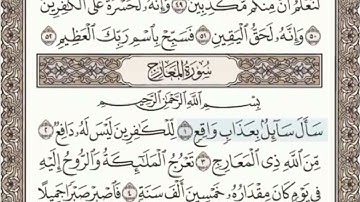 لَنَعْلَمُ أَنَّ مِنكُم مُّكَذِّبِينَ ٤٩ وَإِنَّهُ لَحَسْرَةٌ عَلَى الْكَافِرِينَ
٥٠ وَإِنَّهُ لَحَقُّ الْيَقِينِ ٥١ فَسَبِّحْ بِاسْمِ رَبِّكَ الْعَظِيمِ ٥٢
سُورَةُ الْمَعَارِجِ
بِسْمِ اللَّهِ الرَّحْمَٰنِ الرَّحِيمِ
سَأَلَ سَائِلٌ بِعَذَابٍ وَاقِعٍ ١ لِّلْكَافِرِينَ لَيْسَ لَهُ دَافِعٌ ٢
مِّنَ اللَّهِ ذِي الْمَعَارِجِ ٣ تَعْرُجُ الْمَلَائِكَةُ وَالرُّوحُ إِلَيْهِ
فِي يَوْمٍ كَانَ مِقْدَارُهُ خَمْسِينَ أَلْفَ سَنَةٍ ٤ فَاصْبِرْ صَبْرًا جَمِيلًا